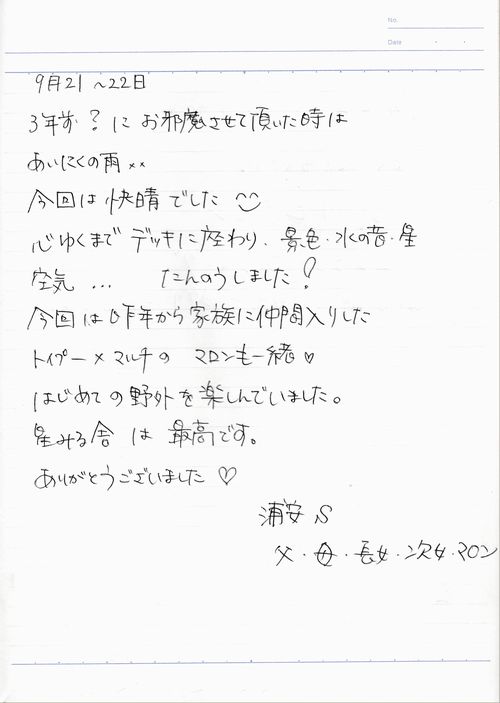 No.
Date
9月21〜22日
3年前?に お邪魔させて頂いた時は
あいにくの雨××
今回は快晴でした
心ゆくまで デッキに座わり、景色・水の音・星
空気 … たんのうしました!
今回は昨年から家族に仲間入りした
トイプー×マルチの マロンも一緒♥
はじめての野外を楽しんでいました。
星みる舎 は 最高です。
ありがとうございました♡
浦安 S
父・母・長女・次女・マロン